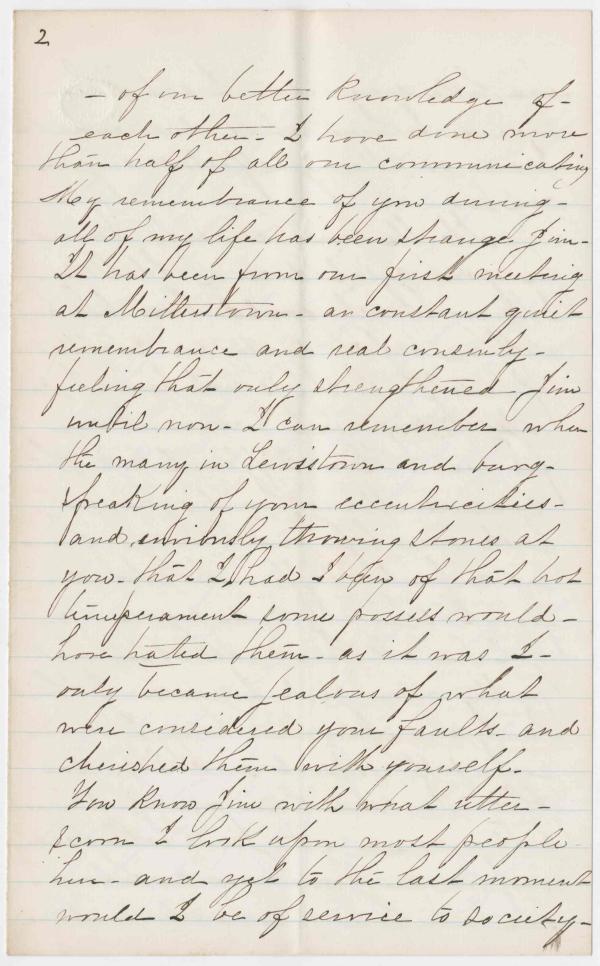 2
- of our better knowledge of-
each other- I have done more
than half of all our communicating
My remembrance of you during-
all of my life has been strange Jim-
It has been from our first meeting
at Millerstown- a constant quiet
remembrance and real
feeling that only strengthened Jim
until now- I can remember when
the many in Lewistown and burg-
speaking of your eccentricities-
and enviously throwing stones at
you- that I, had I been of that hot
temperament some possess would-
have hated them- as it was I-
only became jealous of what
were considered your faults- and
cherished them with yourself-
You know Jim with what utter-
scorn I look upon most people
here- and yet to the last moment
would I be of service to society-